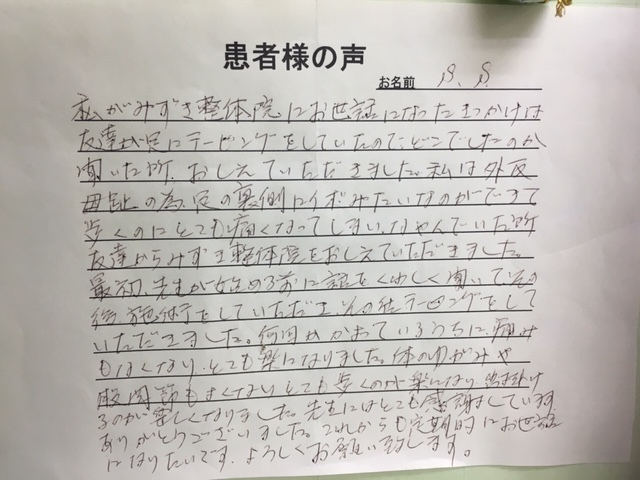 患者様の声
お名前 S. S.
私がみずき整体院にお世話になったきっかけは
友達が足にテーピングをしていたので、どこでしたのか
聞いた所、おしえていただきました。私は外反
母趾の為、足の裏側にイボみたいなのができて
歩くのにとても痛くなってしまい、なやんでいた所
友達からみずき整体院をおしえていただきました。
最初、先生が始める前に話をくわしく聞いて、その
後施術をしていただき、その後テーピングをして
いただきました。何回か かよっているうちに、痛み
もなくなり、とても楽になりました。体のゆがみや
股関節もよくなり、とても歩くのが楽になり、出かけ
るのが楽しくなりました。先生にはとても感謝しています
ありがとうございました。これからも定期的にお世話
になりたいです。よろしくお願い致します。